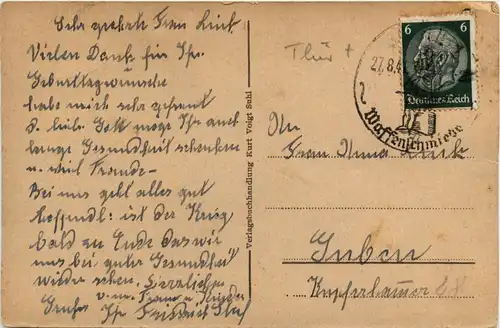 Sehr geehrte Frau
Vielen Dank für Ihr.
Geburtstagswünsche
habe mich sehr gefreut
d. liebe Gott möge Ihr auch
lange Gesundheit schenken
u. viel Freude-
Bei uns geht alles gut
hoffendl: ist der Krieg
bald zu Ende das wir
uns bei guter Gesundheit
wieder sehen. Herzliche
Grüße v. m. Frau u. Kinder
Ihr Friedrich
Verlagsbuchhandlung Kurt Voigt Suhl
Thür +
6 6
Deutsches Reich
27.8.4
Waffenschmiede
An
Frau Anna
Guben
Kupferhammer